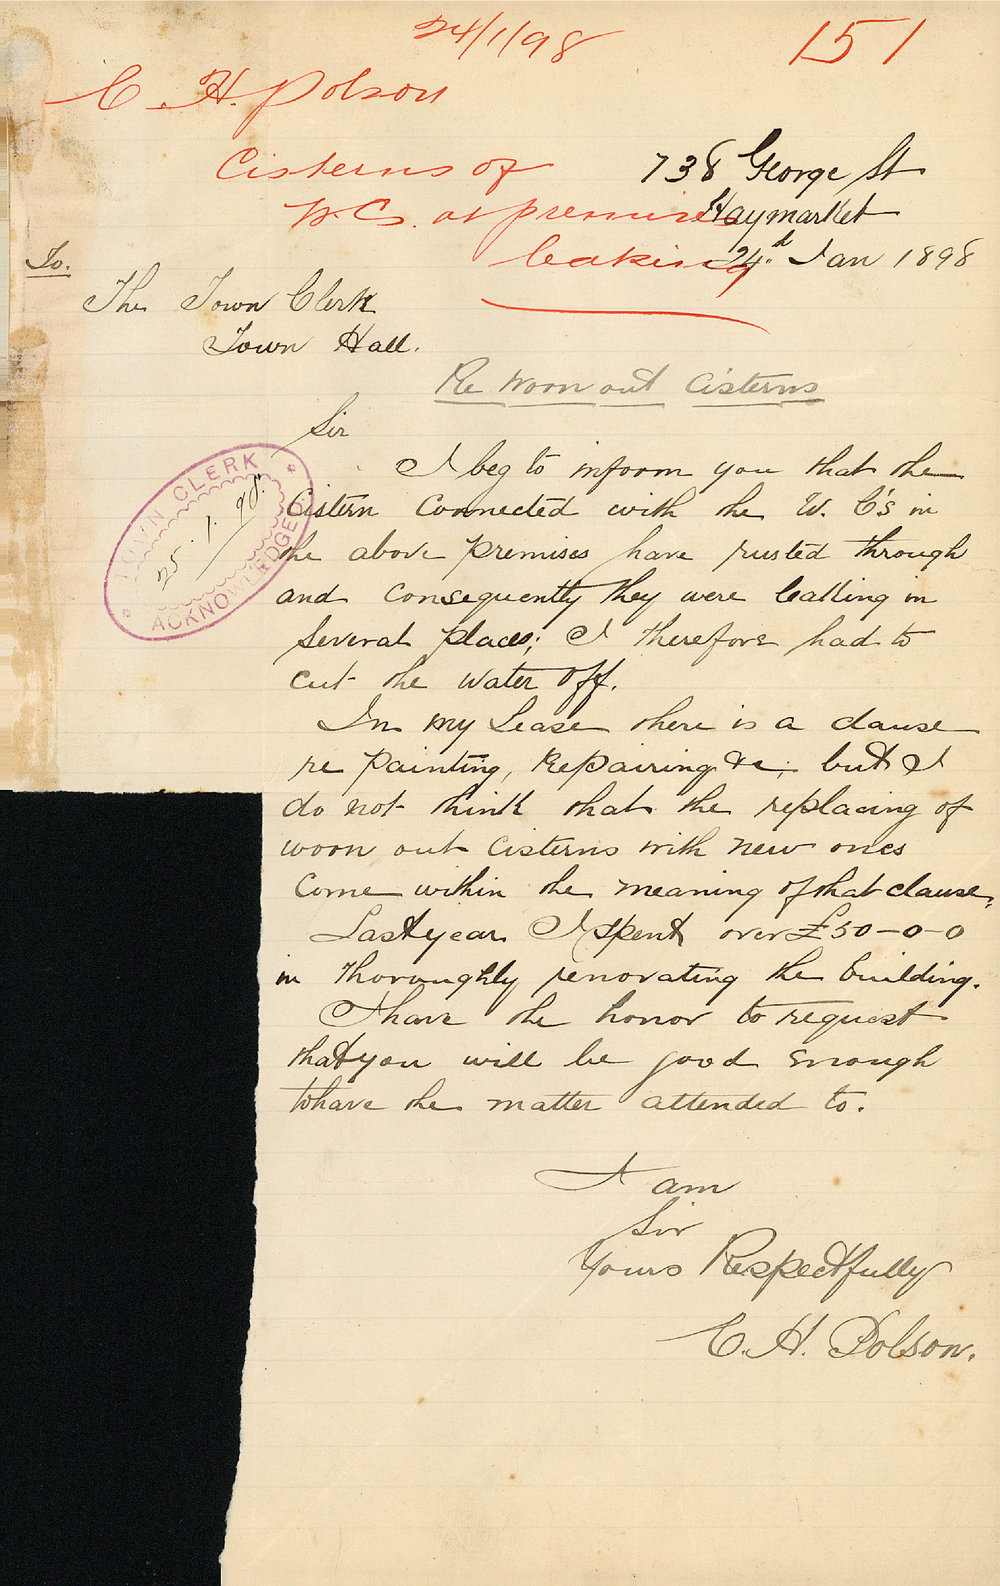 24/1/98 151
C. H. Polson
Cisterns of
W.C. at premises
leaking
738 George St
Haymarket
24.d Jan 1898
To.
The Town Clerk
Town Hall.
Re Worn out Cisterns
Sir
TOWN CLERK
25.1.98.
ACKNOWLEDGED
I beg to inform you that the
Cistern Connected with the W. C's in
the above premises have rusted through
and consequently they were leaking in
several places; I therefore had to
cut the water off.
In my Lease there is a clause
re painting, repairing &c; but I
do not think that the replacing of
worn out cisterns with new ones
come within the meaning of that clause.
Last year I spent over £50-0-0
in thoroughly renovating the building.
I have the honor to request
that you will be good enough
to have the matter attended to.
I am
Sir
Yours Respectfully
C. H. Polson.